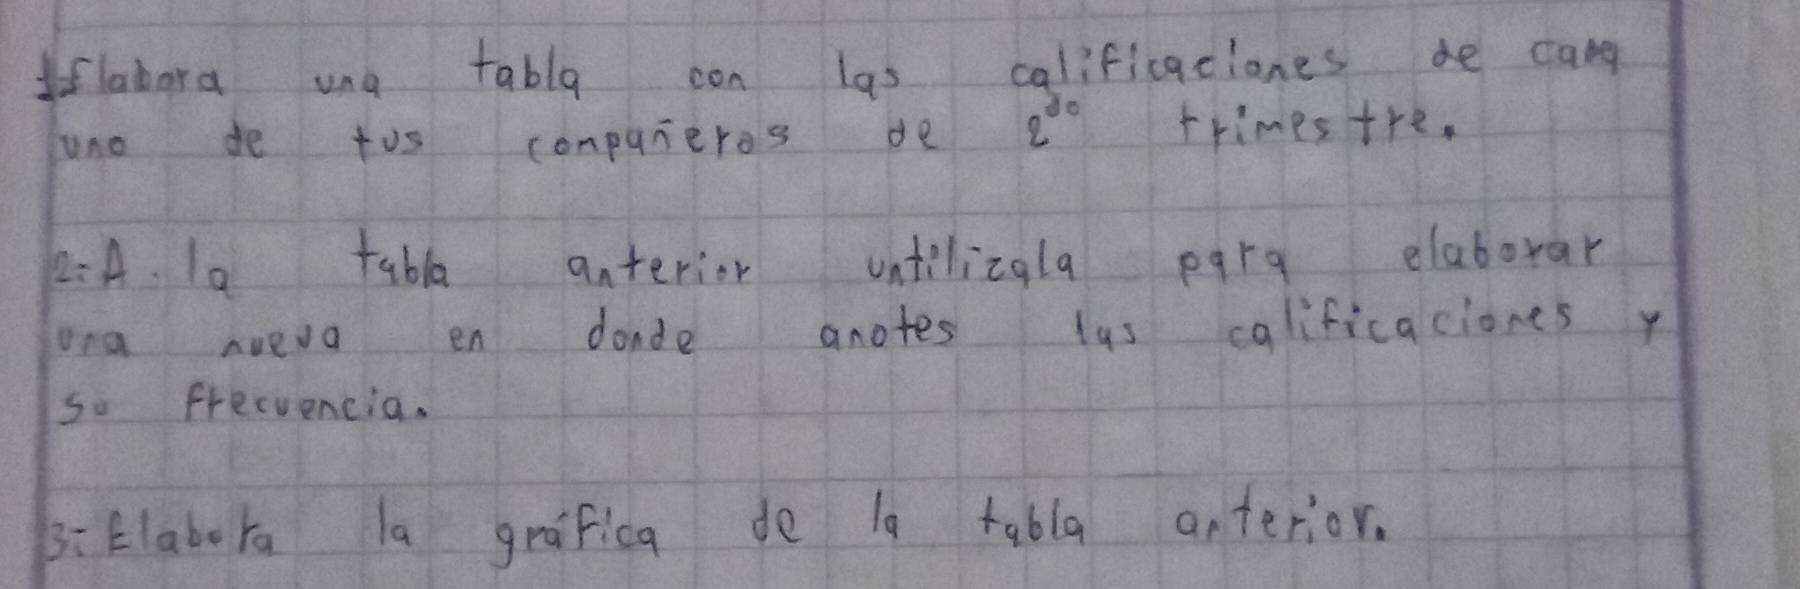 1-Elabora una tabla con las calificaciones de cada
uno de tus conpañeros de 2do trimestre.
2-A. la tabla anterior untilizala para elaborar
una nueva en donde anotes las calificaciones y
su frecuencia.
3-Elabora la gráfica de la tabla anterior.